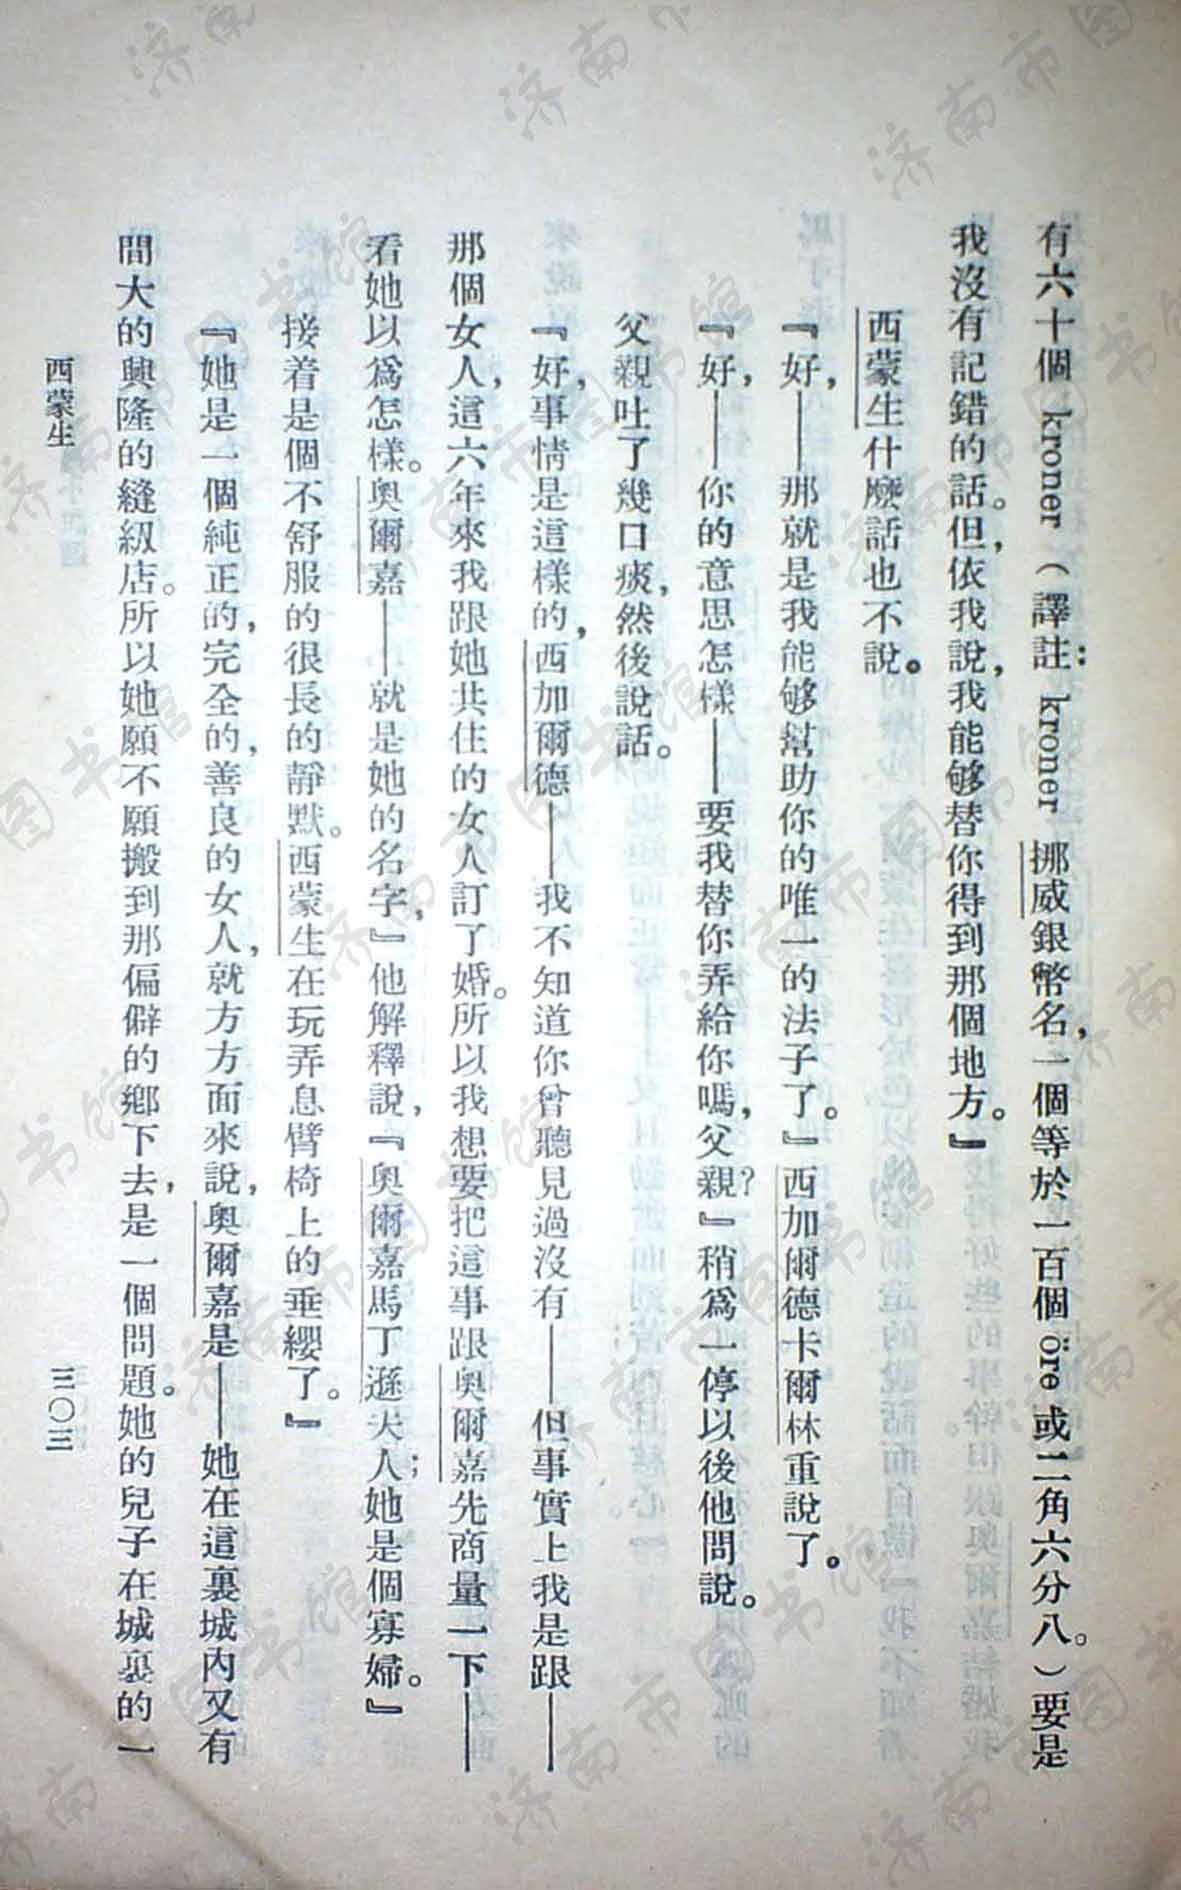 有六十個 kroner（譯註：kroner 挪威銀幣名，一個等於一百個 öre 或二角六分八。）要是
我沒有記錯的話。但，依我說，我能够替你得到那個地方。』
西蒙生什麼話也不說。
『好，——那就是我能够幫助你的唯一的法子了。』西加爾德卡爾林重說了。
『好，——你的意思怎樣——要我替你弄給你嗎，父親？』稍爲一停以後他問說。
父親吐了幾口痰，然後說話。
『好，事情是這樣的，西加爾德——我不知道你曾聽見過沒有——但事實上我是跟——
那個女人，這六年來我跟她共住的女人訂了婚。所以我想要把這事跟奧爾嘉先商量一下——
看她以爲怎樣。奧爾嘉——就是她的名字，』他解釋說，『奧爾嘉馬丁遜夫人；她是個寡婦。』
接着是個不舒服的很長的靜默。西蒙生在玩弄息臂椅上的垂纓了。』
『她是一個純正的，完全的，善良的女人，就方方面來說，奧爾嘉是——她在這裏城內又有
間大的興隆的縫級店。所以她願不願搬到那偏僻的鄉下去，是一個問題。她的兒子在城裏的一
西蒙生
三〇三
济南市图书馆